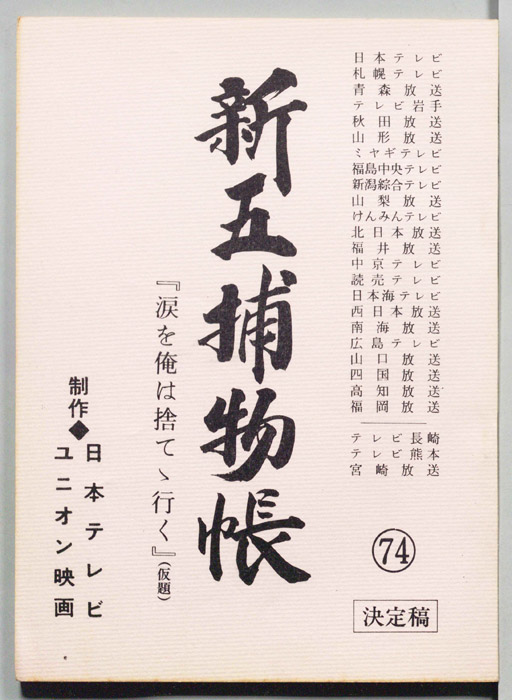 日本テレビ
札幌テレビ
青森放送
テレビ岩手
秋田放送
山形放送
ミヤギテレビ
福島中央テレビ
新潟綜合テレビ
山梨放送
けんみんテレビ
北日本放送
福井放送
中京テレビ
読売テレビ
日本海テレビ
西日本放送
南海放送
広島テレビ
山口放送
四国放送
高知放送
福岡放送
テレビ長崎
テレビ熊本
宮崎放送
74
決定稿
新五捕物帳
『涙を俺は捨てゝ行く』(仮題)
制作◆日本テレビ
ユニオン映画